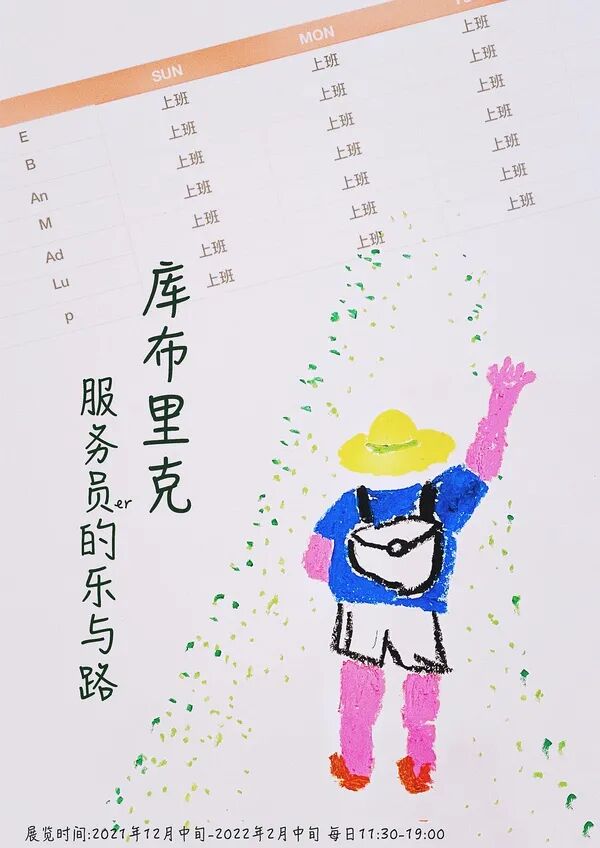 SUN MON
E 上班 上班 上班
B 上班 上班 上班
An 上班 上班 上班
M 上班 上班 上班
Ad 上班 上班 上班
Lu 上班 上班 上班
p 上班 上班 上班
库布里克
服务员er的乐与路
展览时间:2021年12月中旬-2022年2月中旬 每日11:30-19:00